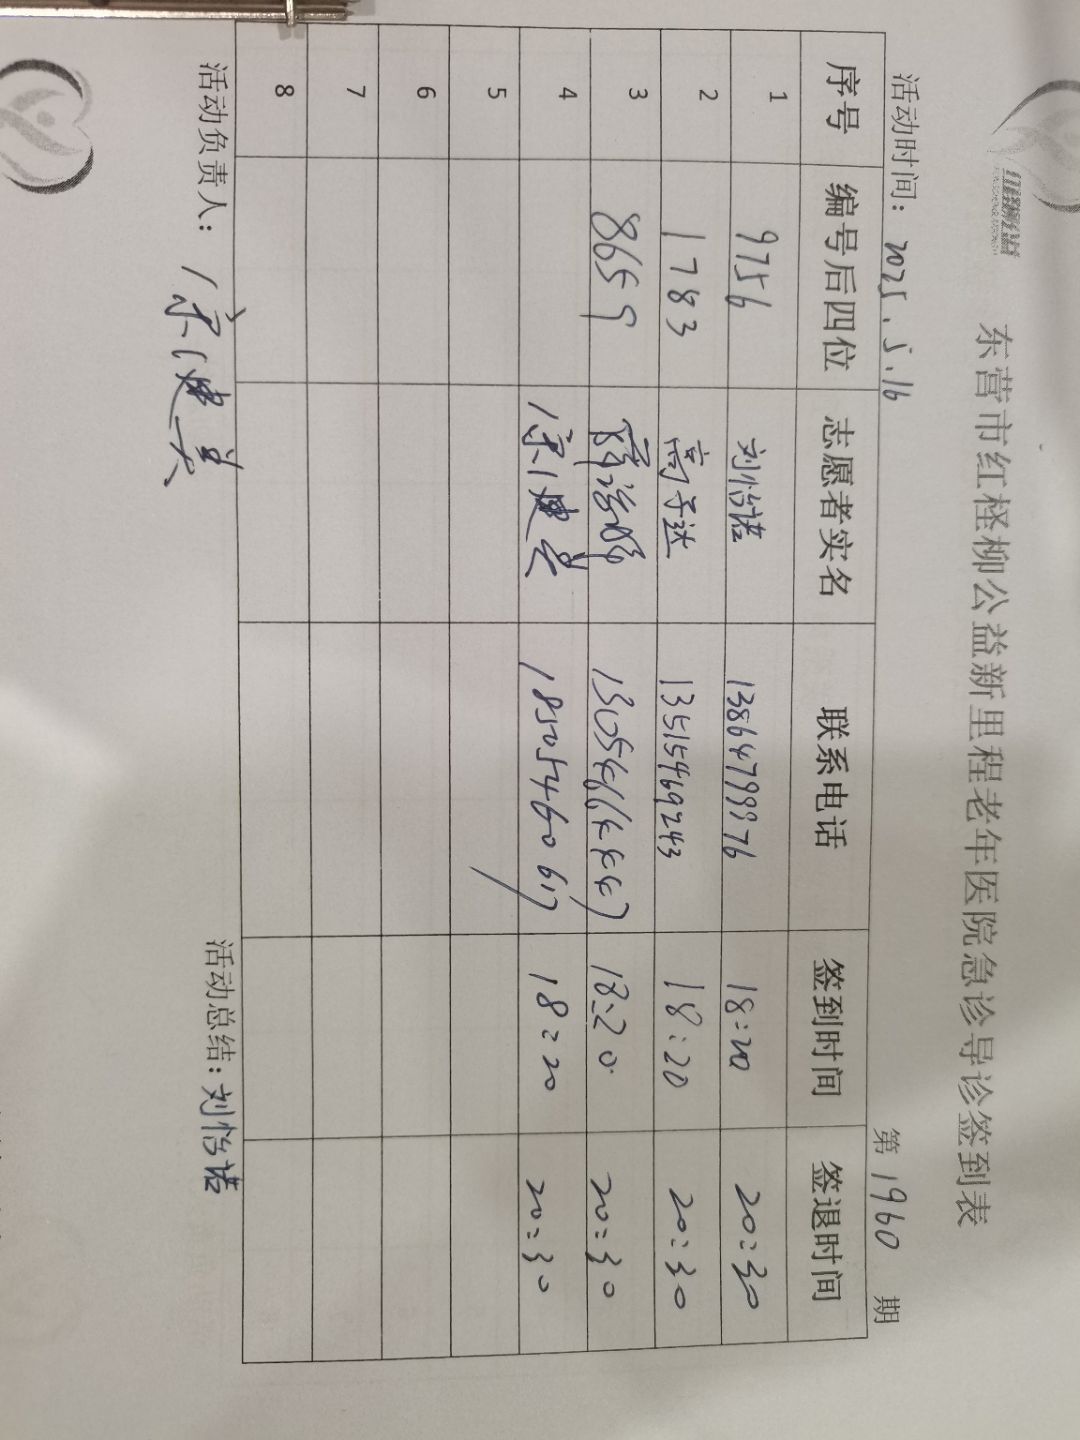 东营市红柽柳公益新里程老年医院急诊导诊签到表
活动时间：2025.5.16 第1960期
序号 编号后四位 志愿者实名 联系电话 签到时间 签退时间
1 9756 刘怡诺 13864799976 18:20 20:30
2 1783 高子达 13515469243 18:20 20:30
3 8659 18:20 20:30
4 18505460617 18:20 20:30
5
6
7
8
活动负责人： 活动总结：刘怡诺